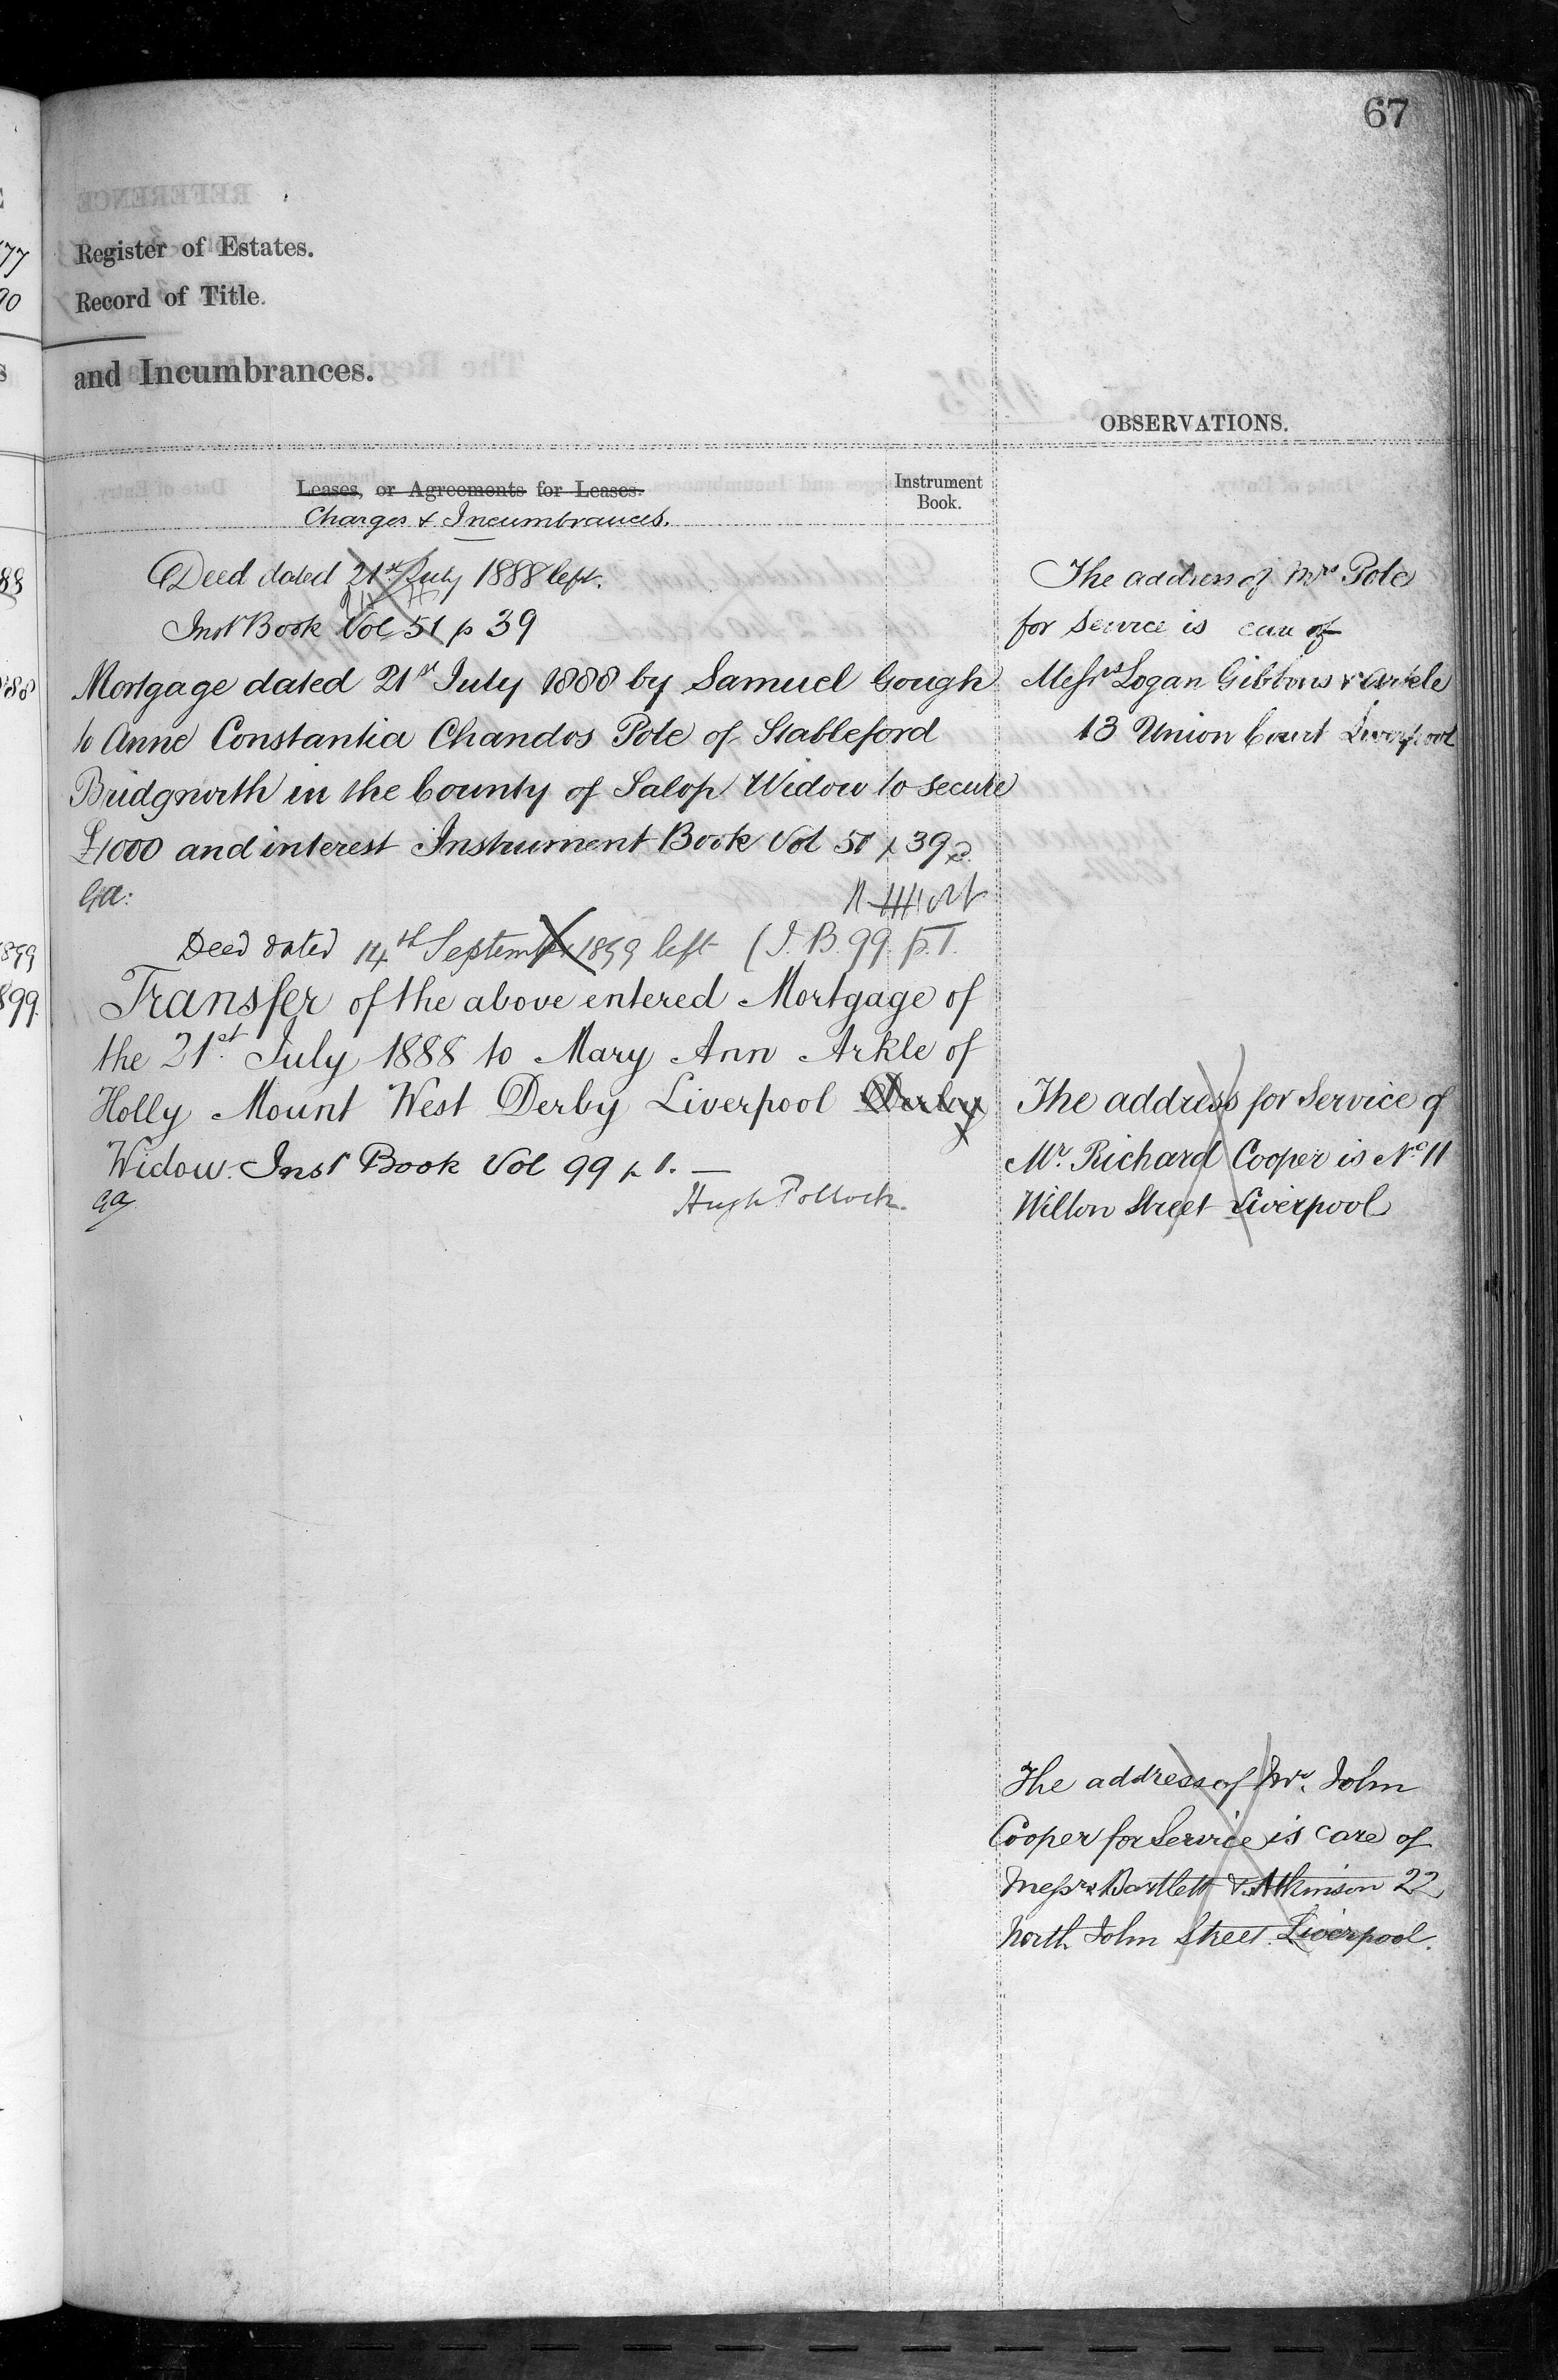 67
Register of Estates.
Record of Title.
and Incumbrances.
OBSERVATIONS.
Leases, or Agreements for Leases.
Charges & Incumbrances.
Instrument
Book.
Deed dated 21st July 1888 left.
Inst Book Vol 51 p 39
Mortgage dated 21st July 1888 by Samuel Gough
to Anne Constantia Chandos Pole of Stableford
Bridgnorth in the County of Salop Widow to secure
£1000 and interest Instrument Book Vol 51 p 39
Ga:
Deed dated 14th September 1899 left (I.B. 99. p. 1.
Transfer of the above entered Mortgage of
the 21st July 1888 to Mary Ann Arkle of
Holly Mount West Derby Liverpool Derby
Widow. Inst Book Vol 99 p 1. —
Ga
Hugh Pollock.
The address of Mrs Pole
for Service is care of
Messrs Logan Gibbons & Arkle
13 Union Court Liverpool
The address for Service of
Mr. Richard Cooper is No 11
Wilton Street Liverpool
The address of Mr. John
Cooper for Service is care of
Messrs Bartlett & Atkinson 22
North John Street Liverpool.